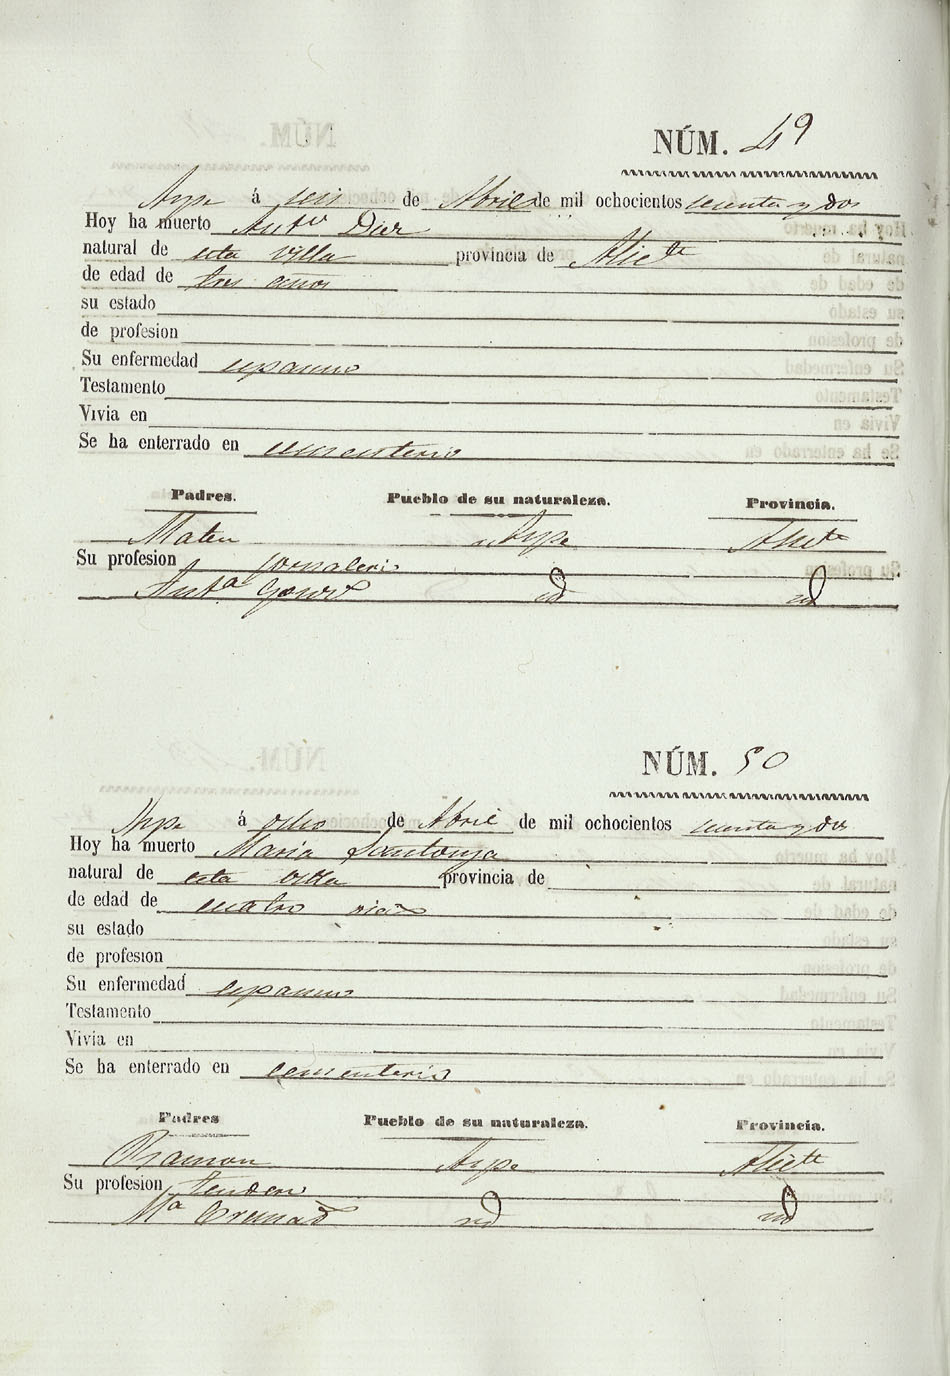 NÚM. 49
Aspe á seis de Abril de mil ochocientos sesenta y dos
Hoy ha muerto Antº Diez
natural de esta villa provincia de Alicte
de edad de tres años
su estado
de profesion
Su enfermedad espasmo
Testamento
Vivia en
Se ha enterrado en cementerio
Padres. Pueblo de su naturaleza. Provincia.
Mateu Aspe Alicte
Su profesion jornalero
Antª id id
NÚM. 50
Aspe á ocho de Abril de mil ochocientos sesenta y dos
Hoy ha muerto Maria Santonja
natural de esta villa provincia de
de edad de cuatro dias
su estado
de profesion
Su enfermedad espasmo
Testamento
Vivia en
Se ha enterrado en cementerio
Padres Pueblo de su naturaleza. Provincia.
Ramon Aspe Alicte
Su profesion tendero
Mª id id